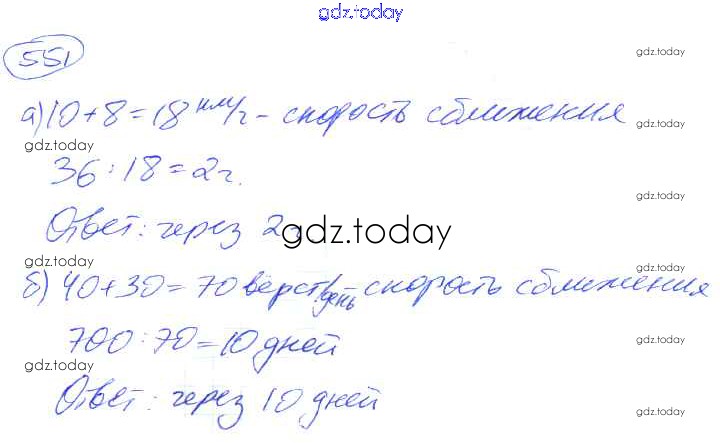 gdz.today
551
gdz.today
а) 10+8=18 км/ч - скорость сближения
gdz.today
gdz.today
36:18=2ч.
gdz.today
Ответ: через 2ч
gdz.today
gdz.today
gdz.today
б) 40+30=70 вёрст/день скорость сближения
gdz.today
700:70=10 дней
gdz.today
Ответ: через 10 дней
gdz.today